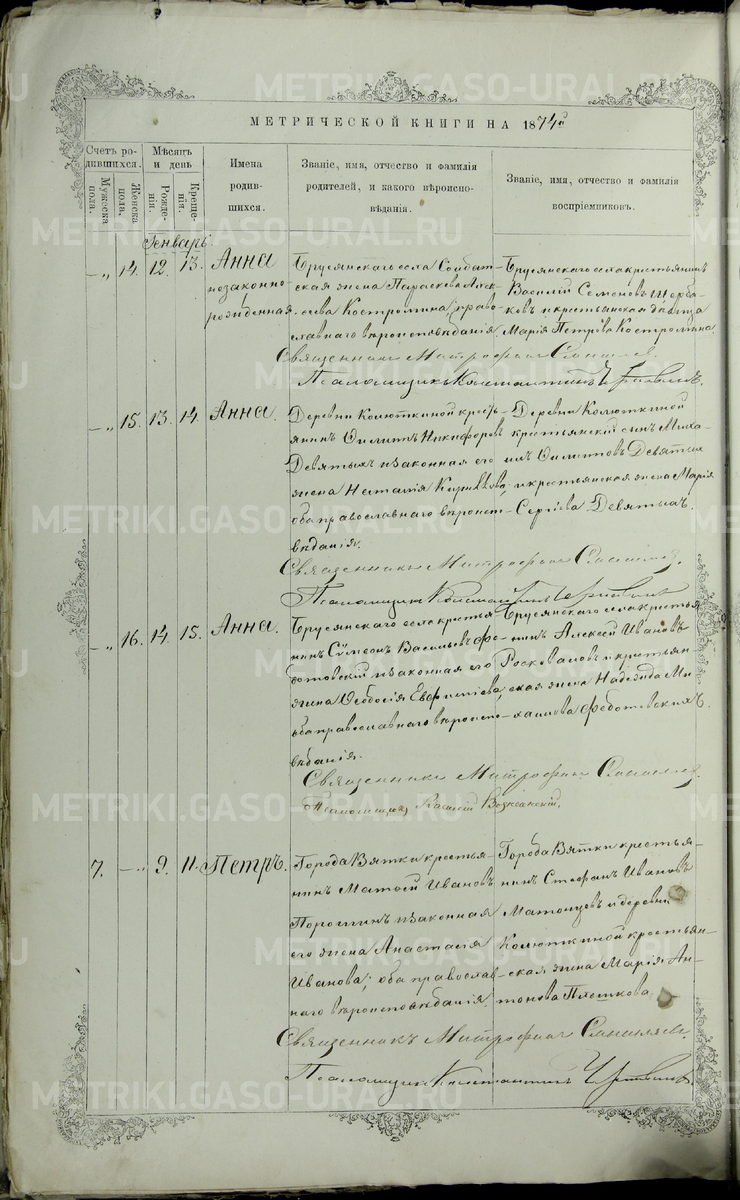 МЕТРИЧЕСКОЙ КНИГИ НА 1874й
Счетъ родившихся.
Мужеска пола.
Женска пола.
Мѣсяцъ и день
Рожденія.
Крещенія.
Имена родившихся.
Званіе, имя, отчество и фамилія родителей, и какого вѣроисповѣданія.
Званіе, имя, отчество и фамилія воспріемниковъ.
Генварь.
— „ 14. 12. 13. Анна незаконнорожденная.
Брусянскаго села Солдат-
ская жена Параскева Алек-
Костромина; право-
славнаго вѣроисповѣданія.
Брусянскаго села крестьянинъ
Василій Семеновъ Щерба-
ковъ и крестьянская дѣвица
Марія Петрова Костромина
Священникъ Митрофанъ
Псаломщикъ Константинъ
— „ 15. 13. 14. Анна.
Деревни Колюткиной кресть-
янинъ Филиппъ Никифоровъ
Девятыхъ и законная его
жена Наталія
оба православнаго вѣроиспо-
вѣданія.
Деревни Колюткиной
крестьянскій сынъ Миха-
илъ Филипповъ Девятыхъ
и крестьянская жена Марія
Сергіева Девятыхъ.
Священникъ Митрофанъ
Псаломщикъ Константинъ
— „ 16. 14. 15. Анна.
Брусянскаго села крестья-
нинъ Сѵмеонъ Васильевъ Фе-
дотовскій и законная его
жена Ѳеодосія
оба православнаго вѣроиспо-
вѣданія.
Брусянскаго села крестья-
нинъ Алексѣй Ивановъ
и крестьян-
ская жена Надежда Ми-
хаилова Федотовскихъ.
Священникъ Митрофанъ
Псаломщикъ Василій Вознесенскій.
7. — „ 9. 11. Петръ.
Города Вятки крестья-
нинъ Матѳей Ивановъ
Порошинъ и законная
его жена Анастасія
Иванова; оба православ-
наго вѣроисповѣданія.
Города Вятки крестья-
нинъ Стефанъ Ивановъ
и деревни
Колюткиной крестьян-
ская жена Марія Ан-
тонова Пляткова
Священникъ Митрофанъ
Псаломщикъ Константинъ
METRIKI.GASO-URAL.RU